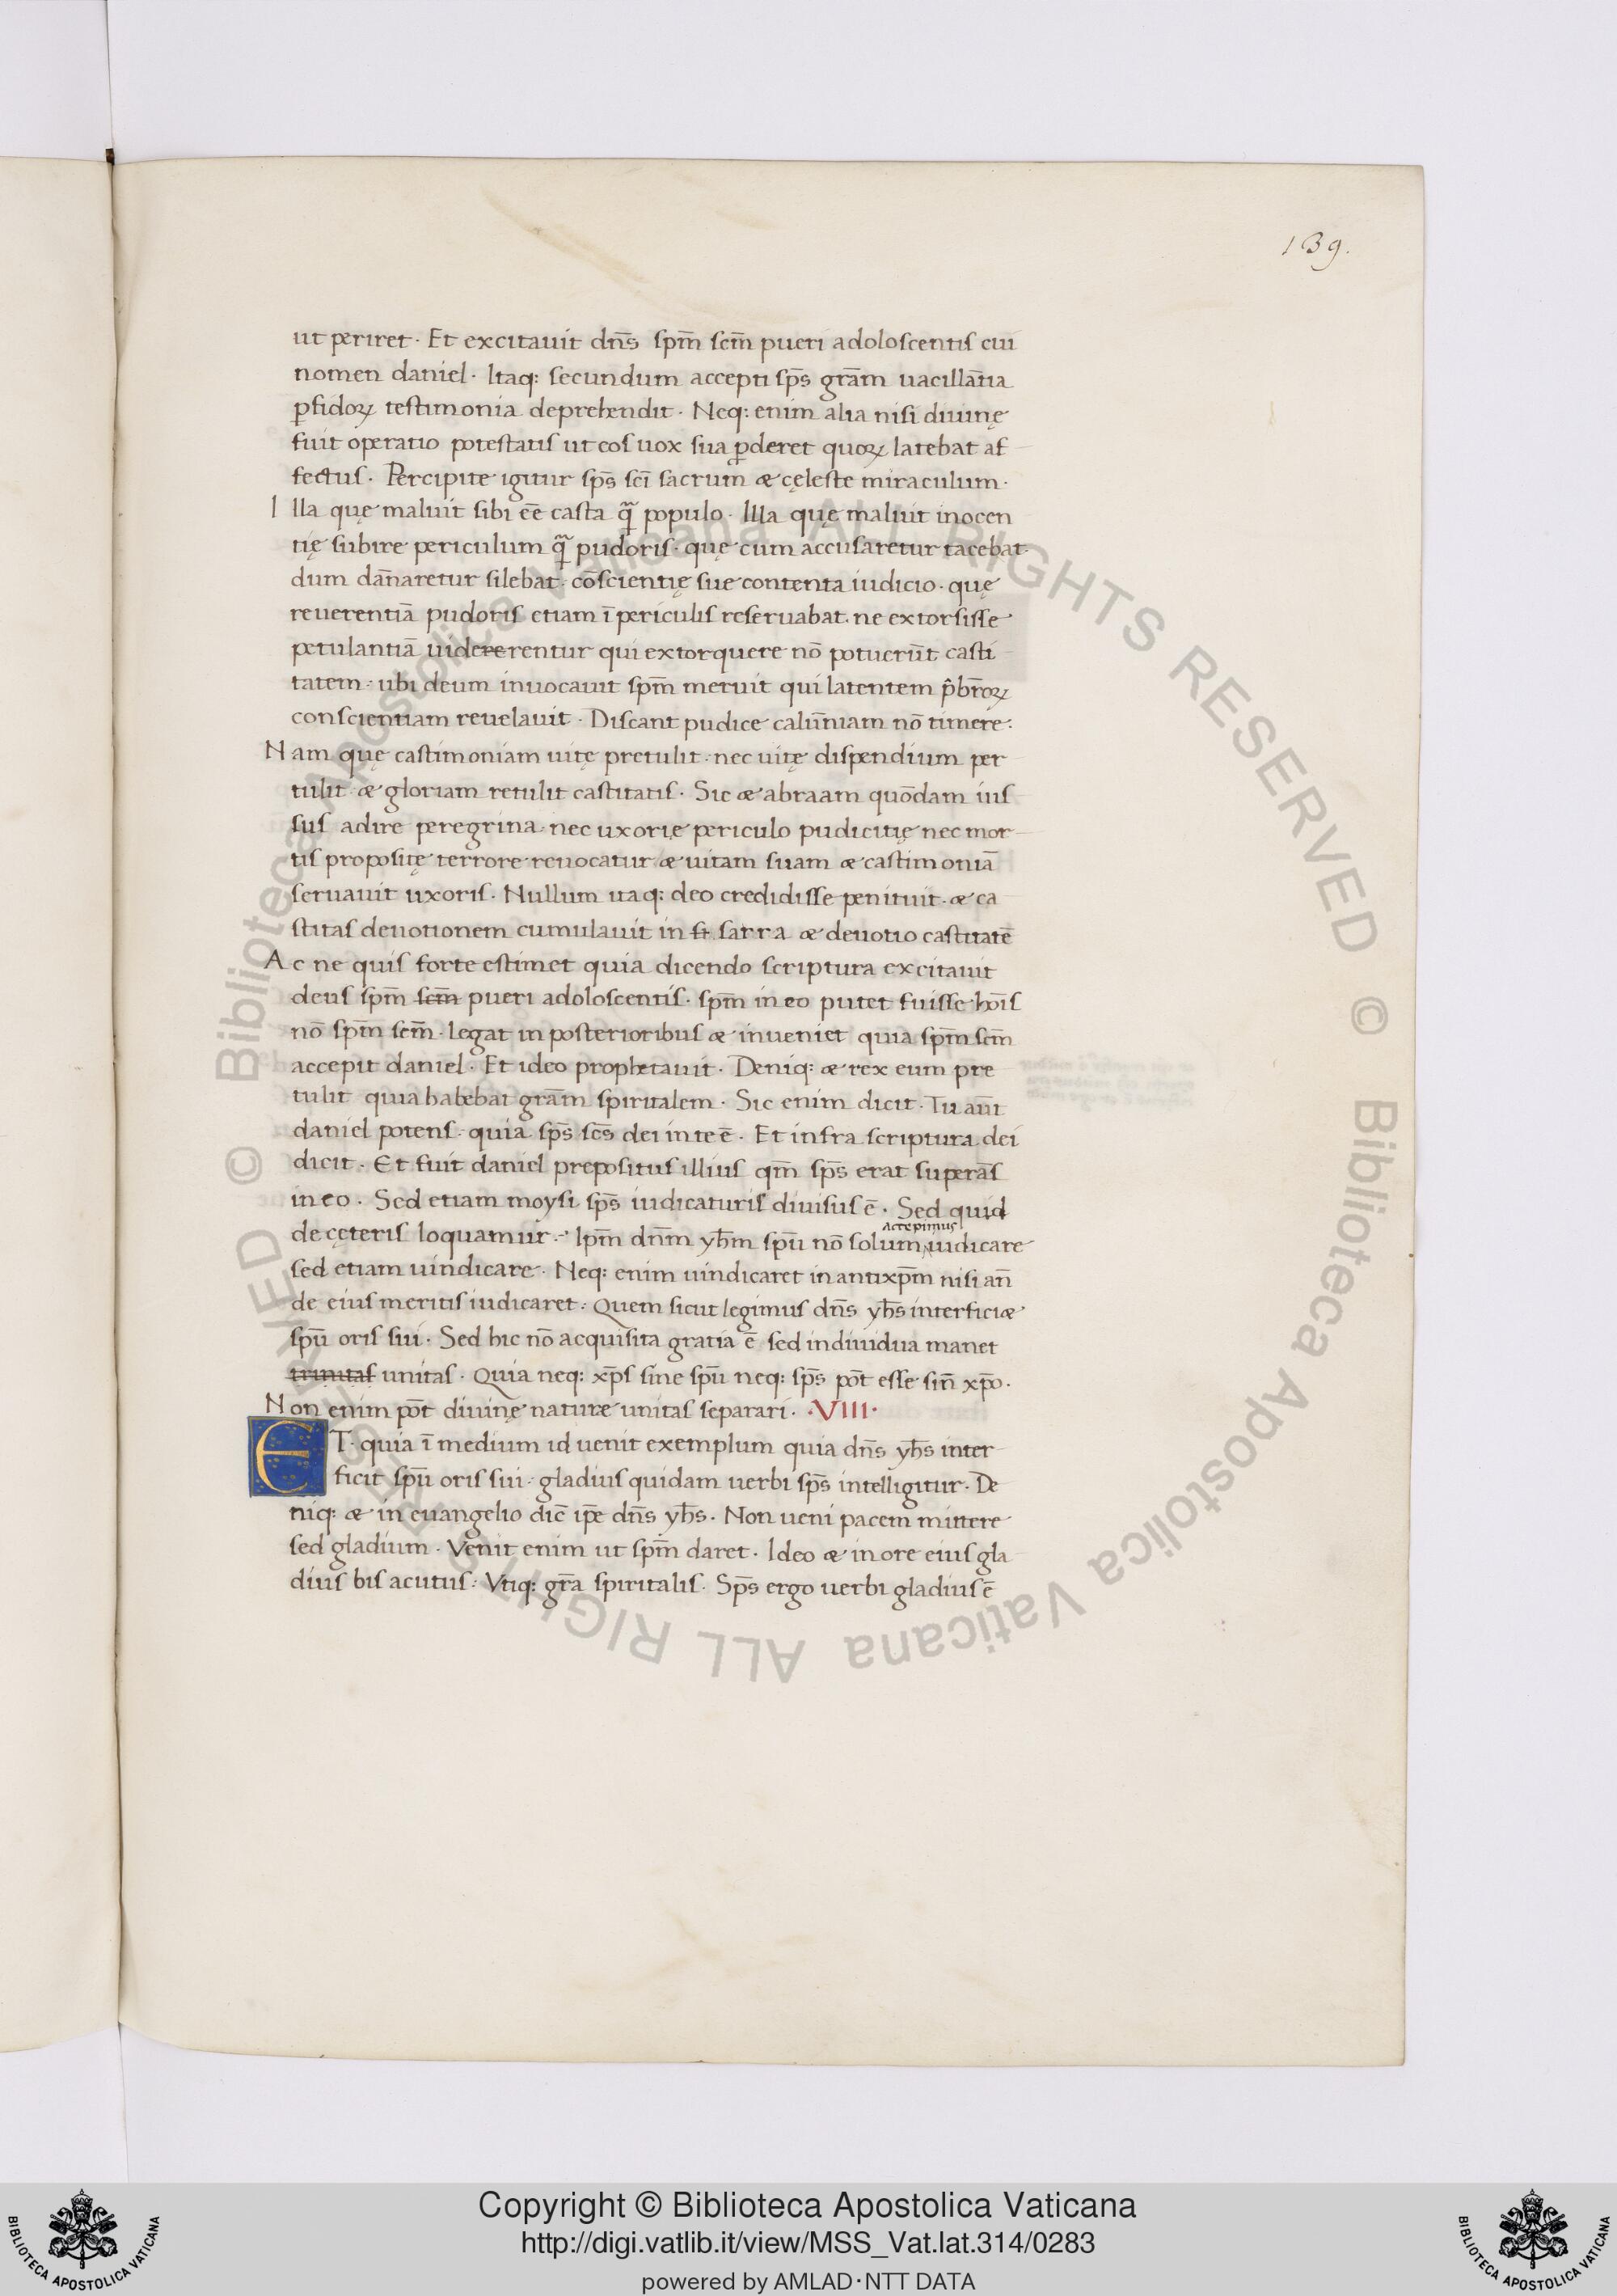 139.
ut periret · Et excitauit dn̄s sp̄m sc̄m pueri adoloscentis cui
nomen daniel · Itaq: secundum accepti sp̄s grām uacillātia
p̱fidoꝝ testimonia deprehendit · Neq: enim alia nisi diuinę
fuit operatio potestatis ut eos uox sua p̱deret quoꝝ latebat af
fectus · Percipite igitur sp̄s sc̄i sacrum æ cęleste miraculum ·
Illa quę maluit sibi eē casta q̄ populo · Illa quę maluit inocen
tię subire periculum q̄ pudoris · quę cum accusaretur tacebat ·
dum dānaretur silebat · cōscientię sue contenta iudicio · quę
reuerentiā pudoris etiam ī periculis reseruabat · ne extorsisse
petulantiā uidererentur qui extorquere nō potuerūt casti
tatem · ubi deum inuocauit sp̄m meruit qui latentem p̄br̄oꝝ
conscientiam reuelauit · Discant pudice calūniam nō timere :
Nam quę castimoniam uitę pretulit · nec uitę dispendium per
tulit · æ gloriam retulit castitatis · Sic æ abraam quōdam ius
sus adire peregrina · nec uxorię periculo pudicitię nec mor
tis propositę terrore reuocatur æ uitam suam æ castimoniā
seruauit uxoris · Nullum itaq: deo credidisse penituit · æ ca
stitas deuotionem cumulauit in sr sarra æ deuotio castitatē
Ac ne quis forte estimet quia dicendo scriptura excitauit
deus sp̄m sc̄m pueri adoloscentis · sp̄m in eo putet fuisse hoīs
nō sp̄m sc̄m · legat in posterioribus æ inueniet quia sp̄m sc̄m
accepit daniel · Et ideo prophetauit · Deniq: æ rex eum pre
tulit quia habebat grām spiritalem · Sic enim dicit · Tu aūt
daniel potens · quia sp̄s sc̄s dei in te ē · Et infra scriptura dei
dicit · Et fuit daniel prepositus illius qm̄ sp̄s erat superās
in eo · Sed etiam moysi sp̄s iudicaturis diuisus ē · Sed quid
accepimus
de cęteris loquamur · Ipm̄ dn̄m yh̄m sp̄u nō solum iudicare
sed etiam uindicare · Neq: enim uindicaret in antixp̄m nisi an̄
de eius meritis iudicaret : Quem sicut legimus dn̄s yh̄s interficiæ
sp̄u oris sui · Sed hic nō acquisita gratia ē sed indiuidua manet
trinitas unitas · Quia neq: xp̄s sine sp̄u neq: sp̄s pōt esse sin̄ xp̄o ·
Non enim pōt diuinę naturæ unitas separari · ·VIII·
ET · quia ī medium id uenit exemplum quia dn̄s yh̄s inter
ficit sp̄u oris sui · gladius quidam uerbi sp̄s intelligitur · De
niq: æ in euangelio dic̄ ip̄e dn̄s yh̄s · Non ueni pacem mittere
sed gladium · Venit enim ut sp̄m daret · Ideo æ in ore eius gla
dius bis acutus : Vtiq: gr̄a spiritalis · Sp̄s ergo uerbi gladius ē
© Biblioteca Apostolica Vaticana ALL RIGHTS RESERVED © Biblioteca Apostolica Vaticana ALL RIGHTS RESERVED
Copyright © Biblioteca Apostolica Vaticana
http://digi.vatlib.it/view/MSS_Vat.lat.314/0283
powered by AMLAD·NTT DATA
BIBLIOTECA APOSTOLICA VATICANA
BIBLIOTECA APOSTOLICA VATICANA